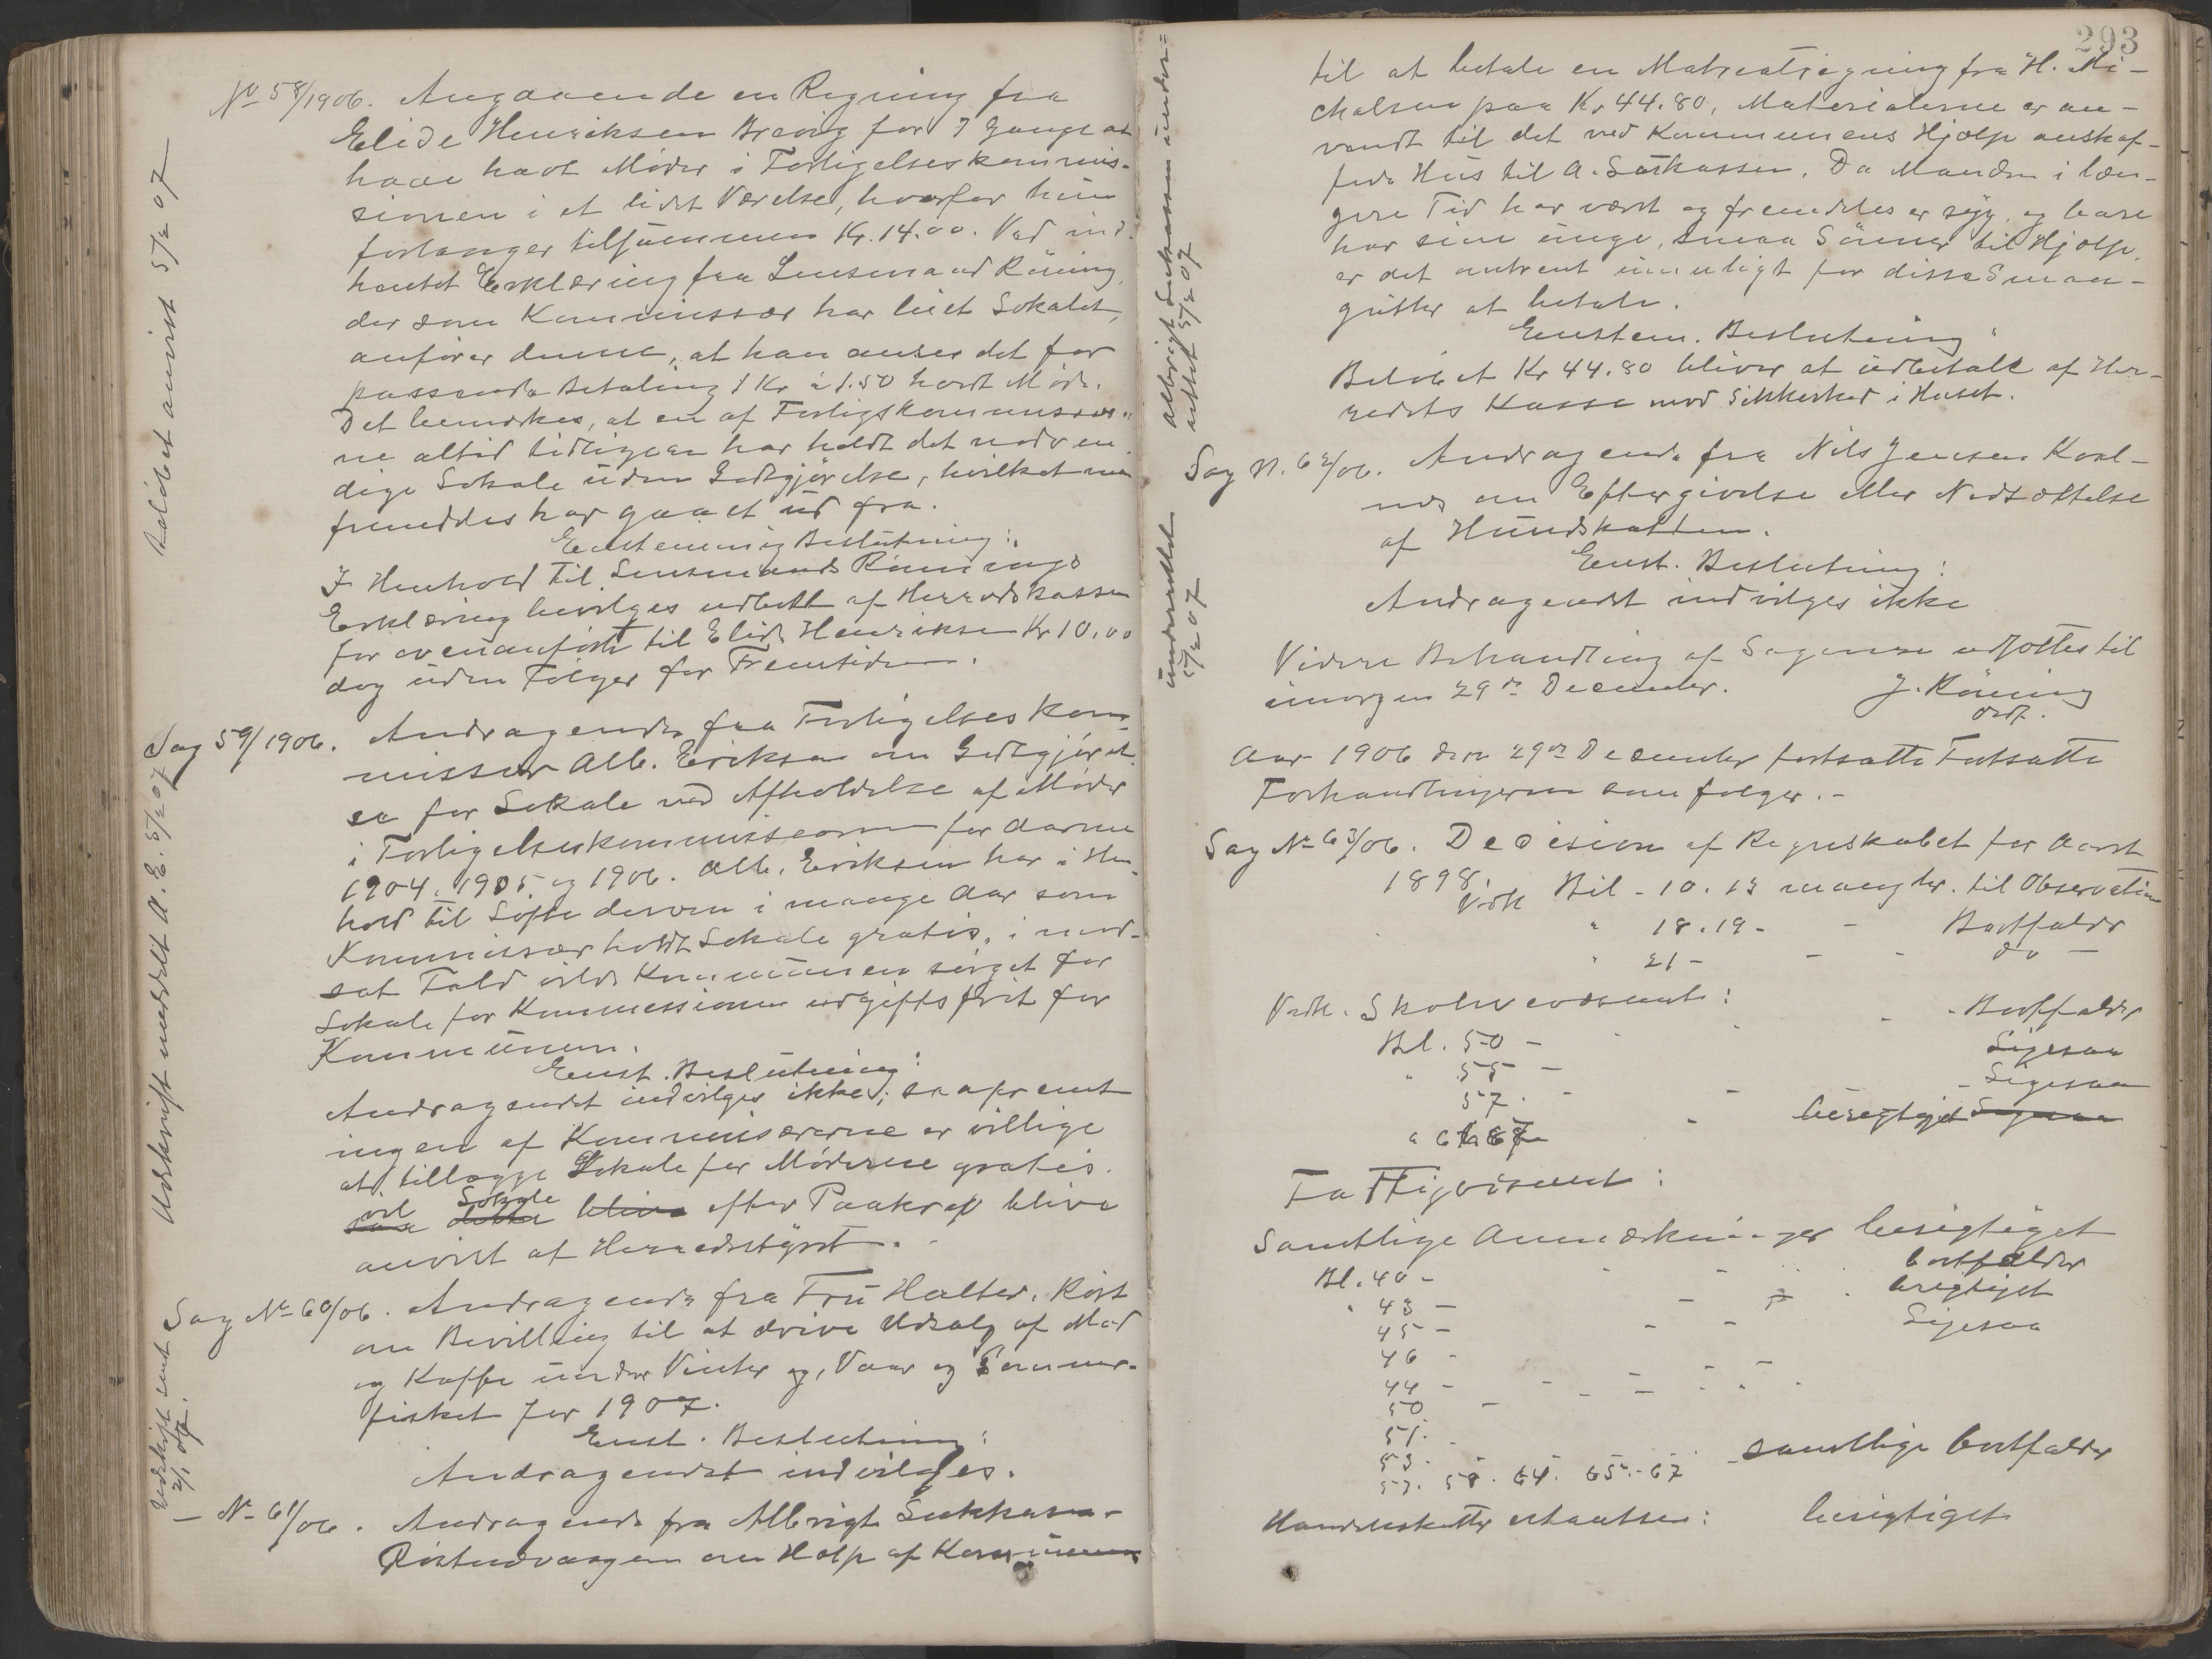 No 58/1906. Angaaende en Regning fra
Elide Henriksen Brevig for 7 Gange at
have havt Møder i Forligelseskommis-
sionen i et lidet Værelse, hvorfor hun
forlanger tilsammen Kr. 14.00. Ved ind-
hentet Erklæring fra Lensmand Röning,
der som Kommissær har leiet Lokalet,
anfører denne, at han anser det for
passende Betaling 1 Kr à 1.50 hvert Møde.
Det bemerkes, at en af Forligskommissærer-
ne altid tidligere har holdt det nødven-
dige Lokale uden Godtgjörelse, hvilket man
fremdeles har gaaet ud fra.
Enstemmig Beslutning:
I Henhold til Lensmand Rönings
Erklæring bevilges udbetalt af Herredskassen
for ovenanførte til Elide Henriksen Kr 10.00
dog uden Følger for Fremtiden.
Beløbet anvist 5/2 07
Sag 59/1906. Andragende fra Forligelseskom-
missær Alb. Eriksen om Godtgjørel-
se for Lokale ved Afholdelse af Møder
i Forligelseskommissionen for Aarene
1904, 1905 og 1906. Alb. Eriksen har i Hen-
hold til Løfte derom i mange Aar som
Kommissær holdt Lokale gratis, i mod-
sat Fald vilde Kommunen sørget for
Lokale for Kommissionen udgiftsfrit for
Kommunen.
Enst. Beslutning:
Andragendet indvilges ikke; saafremt
ingen af Kommissærerne er villige
at tillægge Lokale for Møderne gratis.
vil Lokale
saa dette blive efter Paakrav blive
anvist af Herredsstyret.
Udskrift meddelt A. E. 5/2 07
Sag No 60/06. Andragende fra Fru Halter, Röst
om Bevilling til at drive Udsalg af Mad
og Kaffe under Vinter og, Vaar og Sommer-
fisket for 1907.
Enst. Beslutning:
Andragendet indvilges.
Udskrift sendt
2/1 07.
— No 61/06. Andragende fra Albrigt
om Hjælp af Kommunen
293
til at betale en Matrealregning fra H. Mi-
chalsen paa Kr 44.80, Materialerne er an-
vendt til det ved Kommunens Hjælp anskaf-
fede Hus til A. Da Manden i læn-
gere Tid har været og fremdeles er syg, og bare
har sine unge, smaa Sönner til Hjælp,
er det omtrent umuligt for disse Smaa-
gutter at betale.
Enstem. Beslutning:
Beløbet Kr 44.80 bliver at udbetale af Her-
redets Kasse mod Sikkerhed i Huset.
Albrigt underrettet 5/2 07
Sag N. 62/06. Andragende fra Nils Jensen Kval-
nes om Eftergivelse eller Nedsættelse
af Hundskatten.
Enst. Beslutning:
Andragendet indvilges ikke
underrettet
5/2 07
Videre Behandling af Sagerne udsættes til
imorgen 29de December.
J. Röning
Ordf.
Aar 1906 den 29de December fortsatte Fortsatte
Forhandlingerne som følger.-
Sag No 63/06. Decision af Regnskabet for Aaret
1898.
Vedk Bil - 10. 13 mangler. til Observation
" 18. 19 - - Bortfalder
" 21 - - - do -
Vedk. Skolevæsenet:
Bil. 50 - - - Bortfalder
" 55 - Ligesaa
57. - - - Ligesaa
berigtiget Ligesaa
Fattigvæsenet:
Samtlige Anmærkninger berigtiget
Bl. 40 - - - bortfalder
" 43 - - berigtiget
45 - - - Ligesaa
46 - - -
44 - - - - - -
50 -
51.
53. - samtlige bortfalder
57. 58. 64. 65. - 67
berigtiget